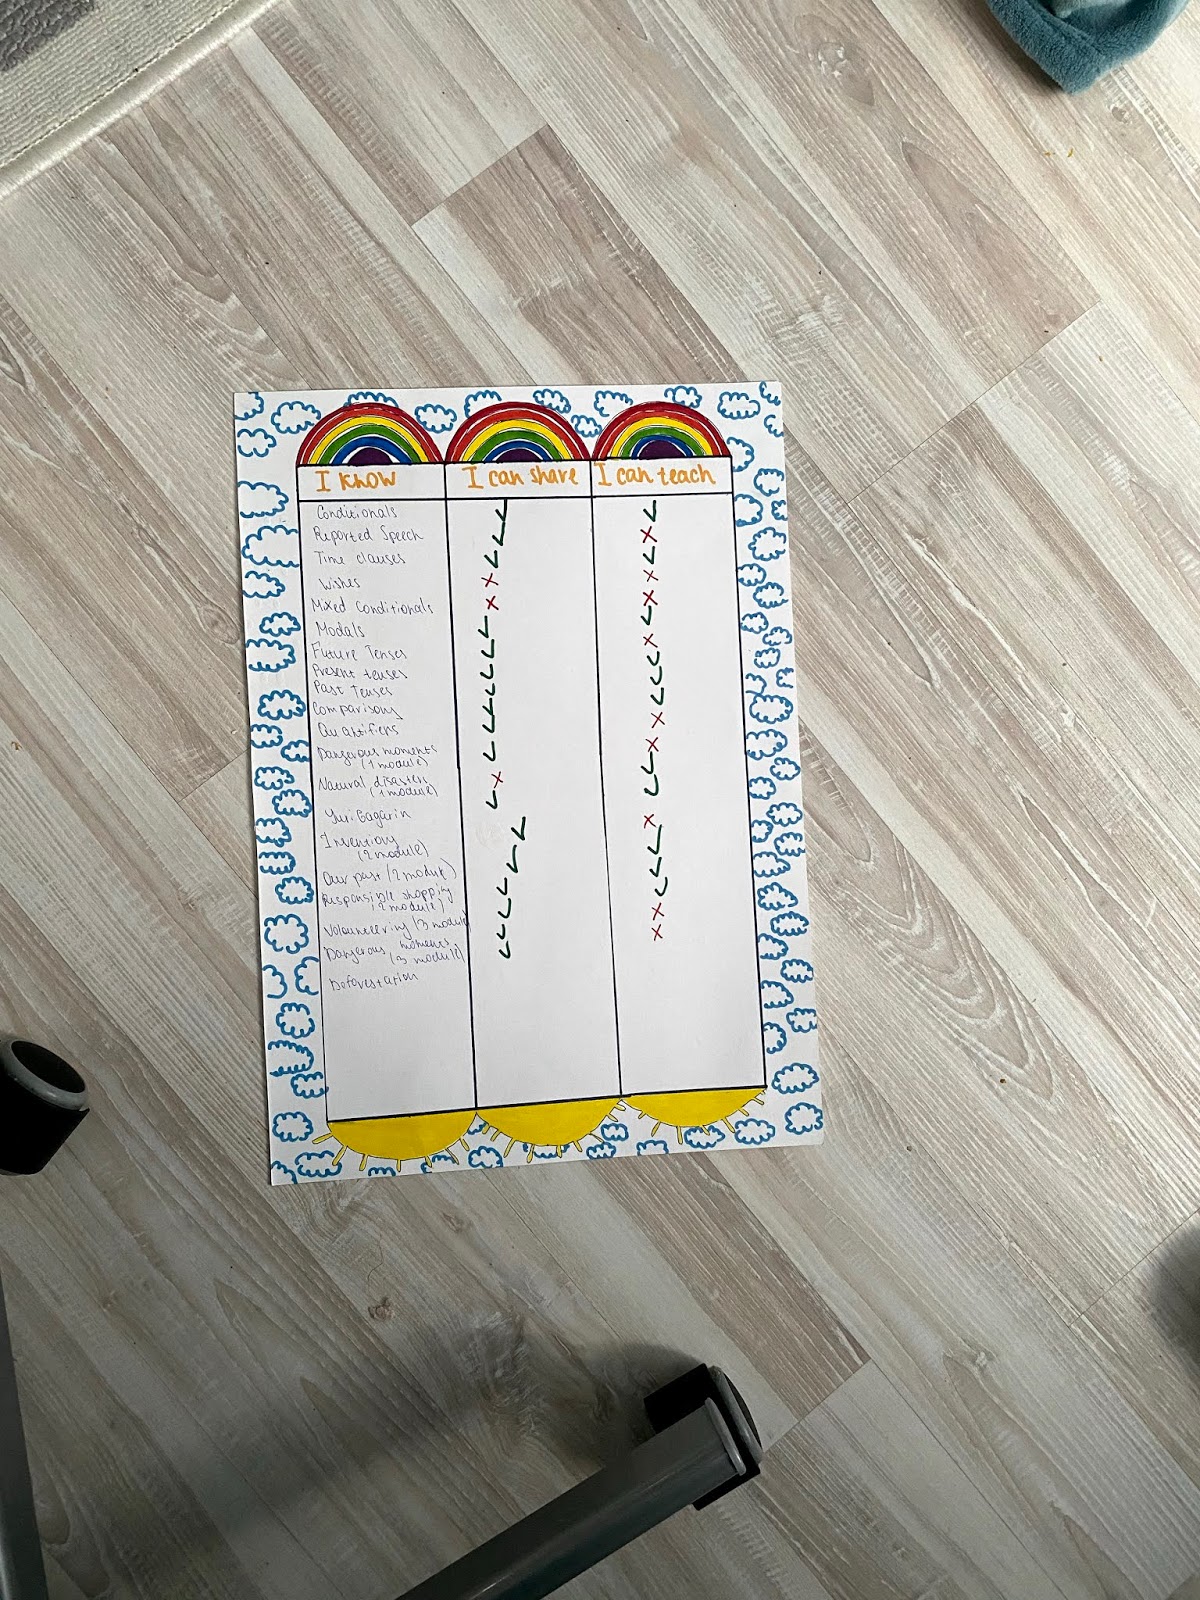 I know
I can share
I can teach
Conditionals
Reported Speech
Time clauses
Wishes
Mixed Conditionals
Modals
Future Tenses
Present tenses
Past Tenses
Comparisons
Quantifiers
Dangerous moments
(1 module)
Natural disasters
(1 module)
Yuri Gagarin
Inventions
(2 module)
Our past (2 module)
Responsible shopping
(2 module)
Volounteering (3 module)
Dangerous moments
(3 module)
Deforestation